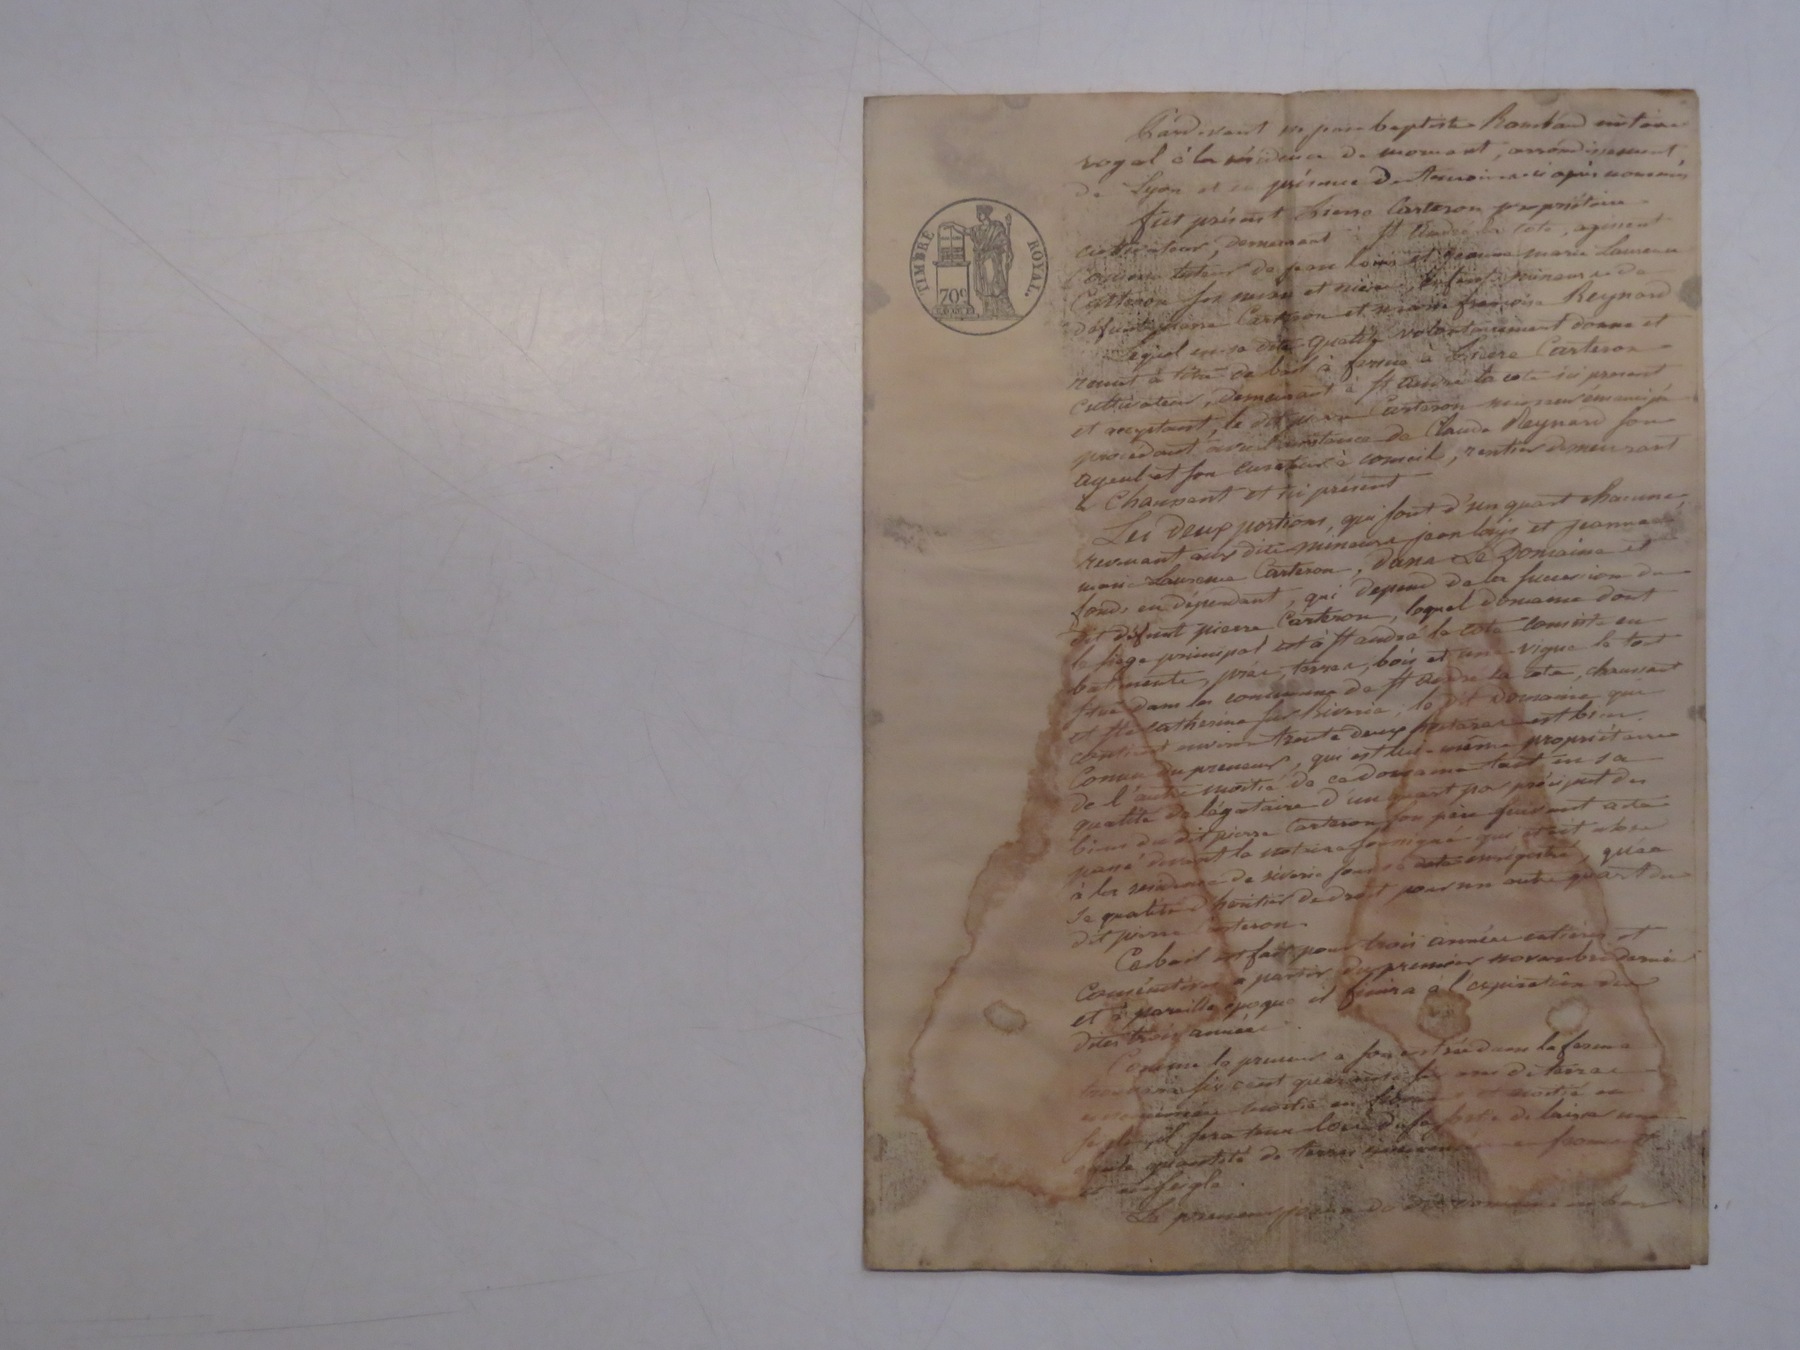 TIMBRE ROYAL.
70c
Pardevant me jean baptiste notaire
royal à la résidence de mornant, arrondissement
de Lyon et en présence des témoins ci après nommés
fut présent Pierre Carteron propriétaire
cultivateur, demeurant à st andré la cote, agissant
Comme tuteur de jean Louis et jeanne marie Laurence
Carteron ses neveu et nièce, enfants mineurs de
défunt pierre Carteron et françoise Reynard
Lequel en sa dite qualité volontairement donne et
remet à titre de bail à ferme à Pierre Carteron
cultivateur, demeurant à st andré la cote ici présent
et acceptant, le dit pierre Carteron mineur émancipé
procédant avec l'assistance de Claude Reynard son
ayeul et son curateur à conseil, rentier demeurant
à Chaussant et ici présent
Les deux portions, qui sont d'un quart chacune,
revenant aux dits mineurs jean louis et jeanne
marie Laurence Carteron, dans Le Domaine et
fonds en dépendant, qui dépend de la succession du
dit défunt pierre Carteron, lequel domaine dont
le siège principal est à st andré la cote consiste en
batiments, prés, terres, bois et une vigne le tout
situé dans les communes de st andré la cote, chaussant
et ste catherine sur Riverie, le dit Domaine qui
contient environ trente deux hectares est bien
Connu du preneur, qui est lui-même propriétaire
de l'autre moitié de ce domaine tant en sa
qualité de légataire d'un quart par préciput des
biens du dit pierre Carteron son père suivant acte
passé devant le notaire soussigné qui était alors
à la résidence de riverie sous sa date enregistré, qu'en
sa qualité d'héritier de droit pour un autre quart du
dit pierre Carteron.
Ce bail est fait pour trois années entières et
Consécutives à partir du premier novembre dernier
et à pareille époque il finira à l'expiration des
dites trois années.
Comme le preneur à son entrée dans la ferme
six cent quarante de terre
moitié en et moitié en
seigle, il sera tenu lors de sa sortie de laisser une
égale quantité de terres en froment
et en seigle.
Le preneur jouira du dit domaine en bon